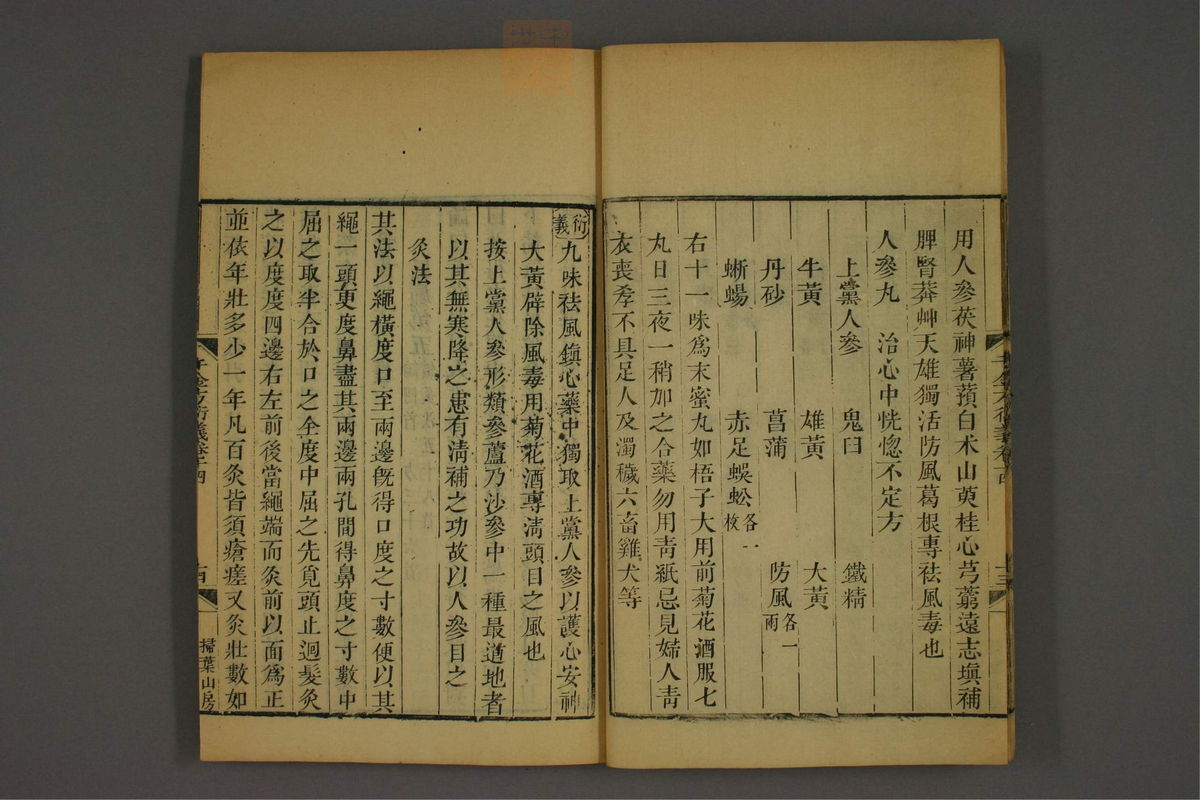 用人參茯神薯蕷白朮山萸桂心芎藭遠志塡補
脾腎莽艸天雄獨活防風葛根專祛風毒也
人參丸 治心中恍惚不定方
上黨人參 鬼臼 鐵精
牛黃 雄黃 大黃
丹砂 菖蒲 防風各一兩
蜥蝪 赤足蜈蚣各一枚
右十一味爲末蜜丸如梧子大用前菊花酒服七
丸日三夜一稍加之合藥勿用靑紙忌見婦人靑
衣喪孝不具足人及濁穢六畜雞犬等
衍義
九味祛風鎭心藥中獨取上黨人參以護心安神
大黃辟除風毒用菊花酒專淸頭目之風也
按上黨人參形類參蘆乃沙參中一種最遒地者
以其無寒降之患有淸補之功故以人參目之
灸法
其法以繩橫度口至兩邊旣得口度之寸數便以其
繩一頭更度鼻盡其兩邊兩孔間得鼻度之寸數中
屈之取半合於口之全度中屈之先覓頭上迴髮灸
之以度度四邊右左前後當繩端而灸前以面爲正
並依年壯多少一年凡百灸皆須瘡瘥又灸壯數如
千金方衍義卷十四
十四
掃葉山房